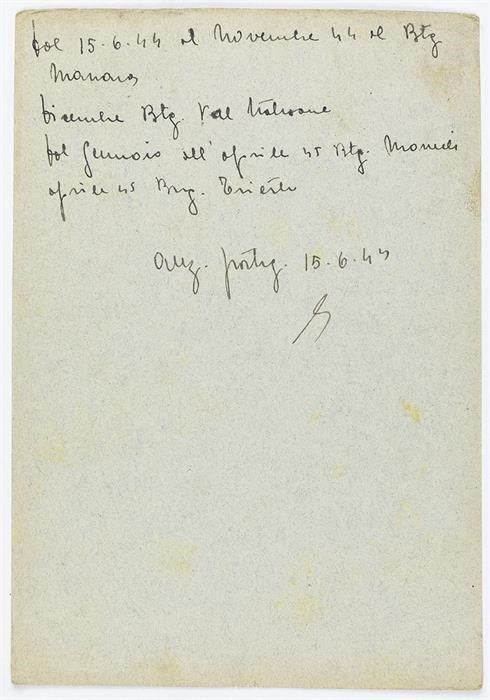 Dal 15.6.44 al Novembre 44 al Btg
Manara
Dicembre Btg. Val
Dal Gennaio all'aprile 45 Btg.
aprile 45 Brig. Trieste
Anz. partig. 15.6.44